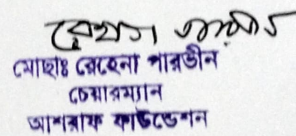 মোছাঃ রেহেনা পারভীন
চেয়ারম্যান
আশরাফ ফাউন্ডেশন